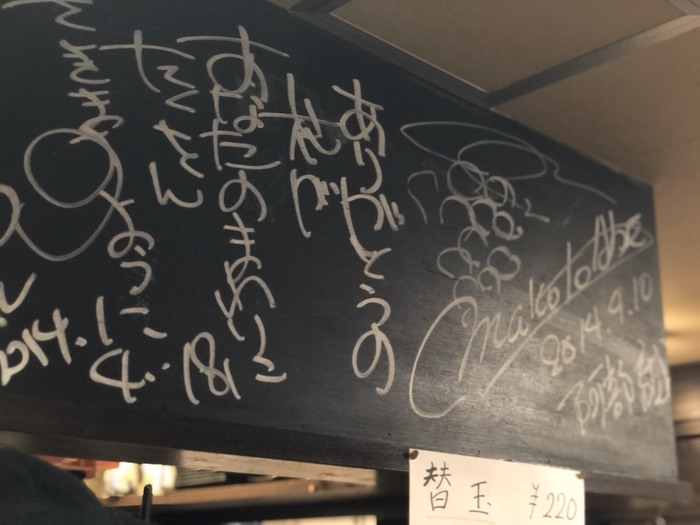 Makoto Abe
2014.9.10
阿部
ありがとうの
花が
あなたのまわりに
たくさん
さきますように
2014.4.18
替玉 ¥220